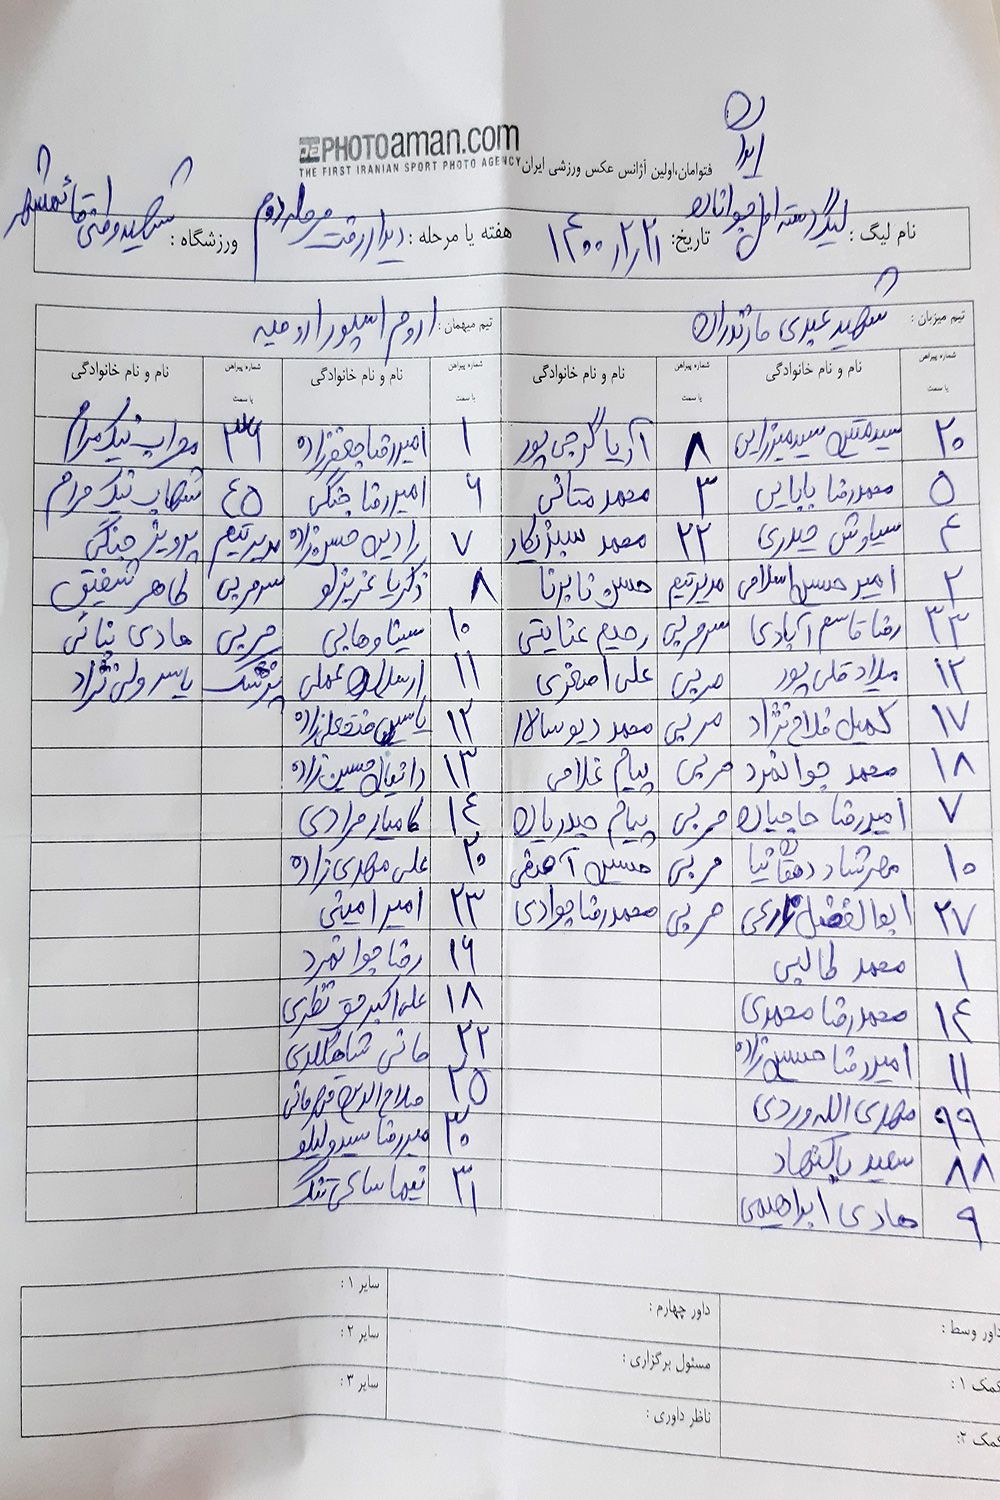 PHOTOaman.com
THE FIRST IRANIAN SPORT PHOTO AGENCY
فتوامان،اولین آژانس عکس ورزشی ایران
ایران
نام لیگ : لیگ دسته اول جوانان تاریخ: ۱۴۰۰/۲/۲۱ هفته یا مرحله : دیدار رفت مرحله دوم ورزشگاه : شهید وطنی قائمشهر
تیم میزبان : شهید عبدی مازندران تیم میهمان : اروم اسپور ارومیه
شماره پیراهن یا سمت نام و نام خانوادگی شماره پیراهن یا سمت نام و نام خانوادگی شماره پیراهن یا سمت نام و نام خانوادگی شماره پیراهن یا سمت نام و نام خانوادگی
۲۰ سیدمتین سیدمیرزایی ۸ آریا گرجی پور ۱ امیررضا جعفرزاده ۳۶ مهراب نیک مرام
۵ محمدرضا بابایی ۳ محمد متانی ۶ امیررضا جنگی ۴۵ شهاب نیک مرام
۴ سیاوش حیدری ۲۲ محمد سبزیکار ۷ رادین حسن زاده مدیرتیم پرویز جنگی
۲ امیرحسین اسلامی مدیرتیم حسن ناپرنا ۸ زکریا عزیزلو سرمربی طاهر شفیق
۳۳ رضا قاسم آبادی سرمربی رحیم عنایتی ۱۰ سینا وهابی مربی هادی بنائی
۱۲ میلاد قلی پور مربی علی اصغری ۱۱ ارسلان عملی پزشک یاسر ولی نژاد
۱۷ کمیل فلاح نژاد مربی محمد دیوسالار ۱۲ یاسین فتحعلی زاده
۱۸ محمد جوانمرد مربی پیام غلامی ۱۳ دانیال حسین زاده
۷ امیررضا حاجیان مربی پیام حیدریان ۱۴ کامیار مرادی
۱۰ مهرشاد دهقان نیا مربی حسین آهنقی ۲۰ علی مهدی زاده
۲۷ ابوالفضل زارعی مربی محمدرضا جوادی ۲۳ امیر امینی
۱ محمد طالبی ۱۶ رضا جوانمرد
۱۴ محمدرضا محمدی ۱۸ علی اکبر حق نظری
۱۱ امیررضا حسین زاده ۲۲ مانی شاهگلدی
۹۹ مهدی الله وردی ۲۵ صلاح الدین قهرمانی
۸۸ سعید پاکنهاد ۳۰ میررضا سیدولیلو
۹ هادی ابراهیمی ۳۱ نیما ساعی تنگ
داور وسط : داور چهارم : سایر ۱ :
کمک ۱ : مسئول برگزاری : سایر ۲ :
کمک ۲: ناظر داوری : سایر ۳ :